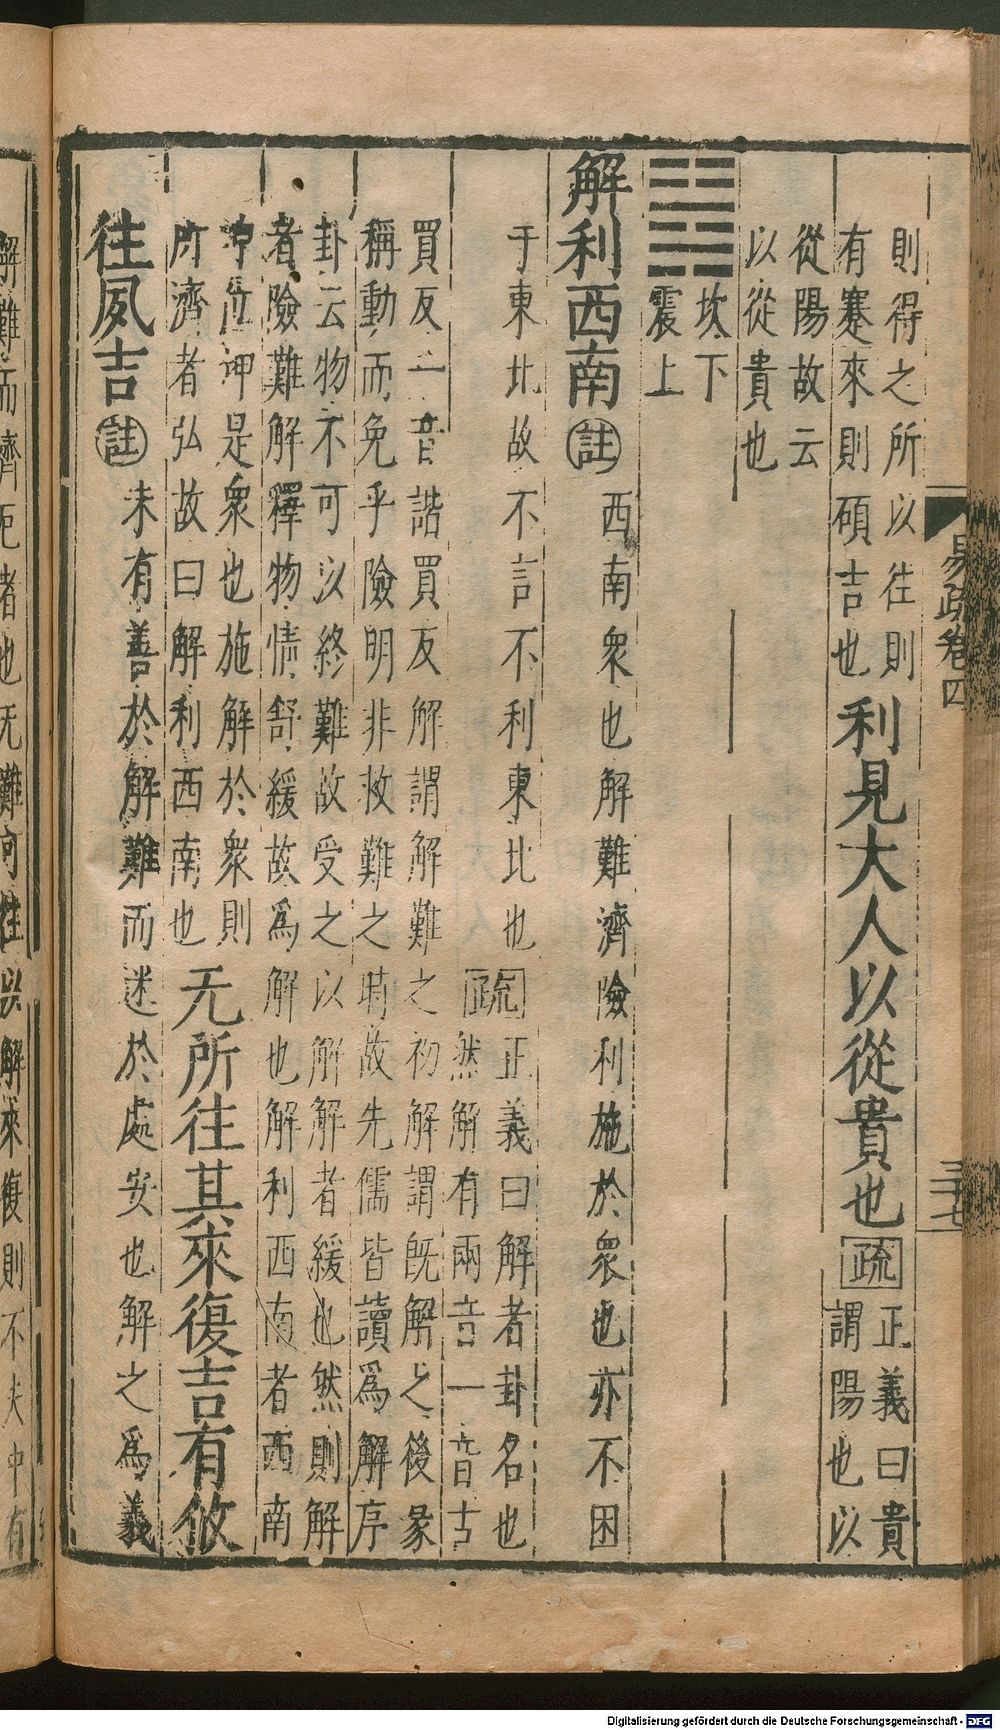 易疏卷四
三十七
則得之所以往則
有蹇來則碩吉也
利見大人以從貴也
疏
正義曰貴
謂陽也以
從陽故云
以從貴也
坎下
震上
解利西南
註
西南衆也解難濟險利施於衆也亦不困
于東北故不言不利東北也
疏
正義曰解者卦名也
然解有兩音一音古
買反一音諧買反解謂解難之初解謂旣解之後彖
稱動而免乎險明非救難之時故先儒皆讀爲解序
卦云物不可以終難故受之以解解者緩也然則解
者險難解釋物情舒緩故爲解也解利西南者西南
坤位坤是衆也施解於衆則
所濟者弘故曰解利西南也
无所往其來復吉有攸
往夙吉
註
未有善於解難而迷於處安也解之爲義
解難而濟厄者也无難可往以解來復則不夫中有
Digitalisierung gefördert durch die Deutsche Forschungsgemeinschaft - DFG